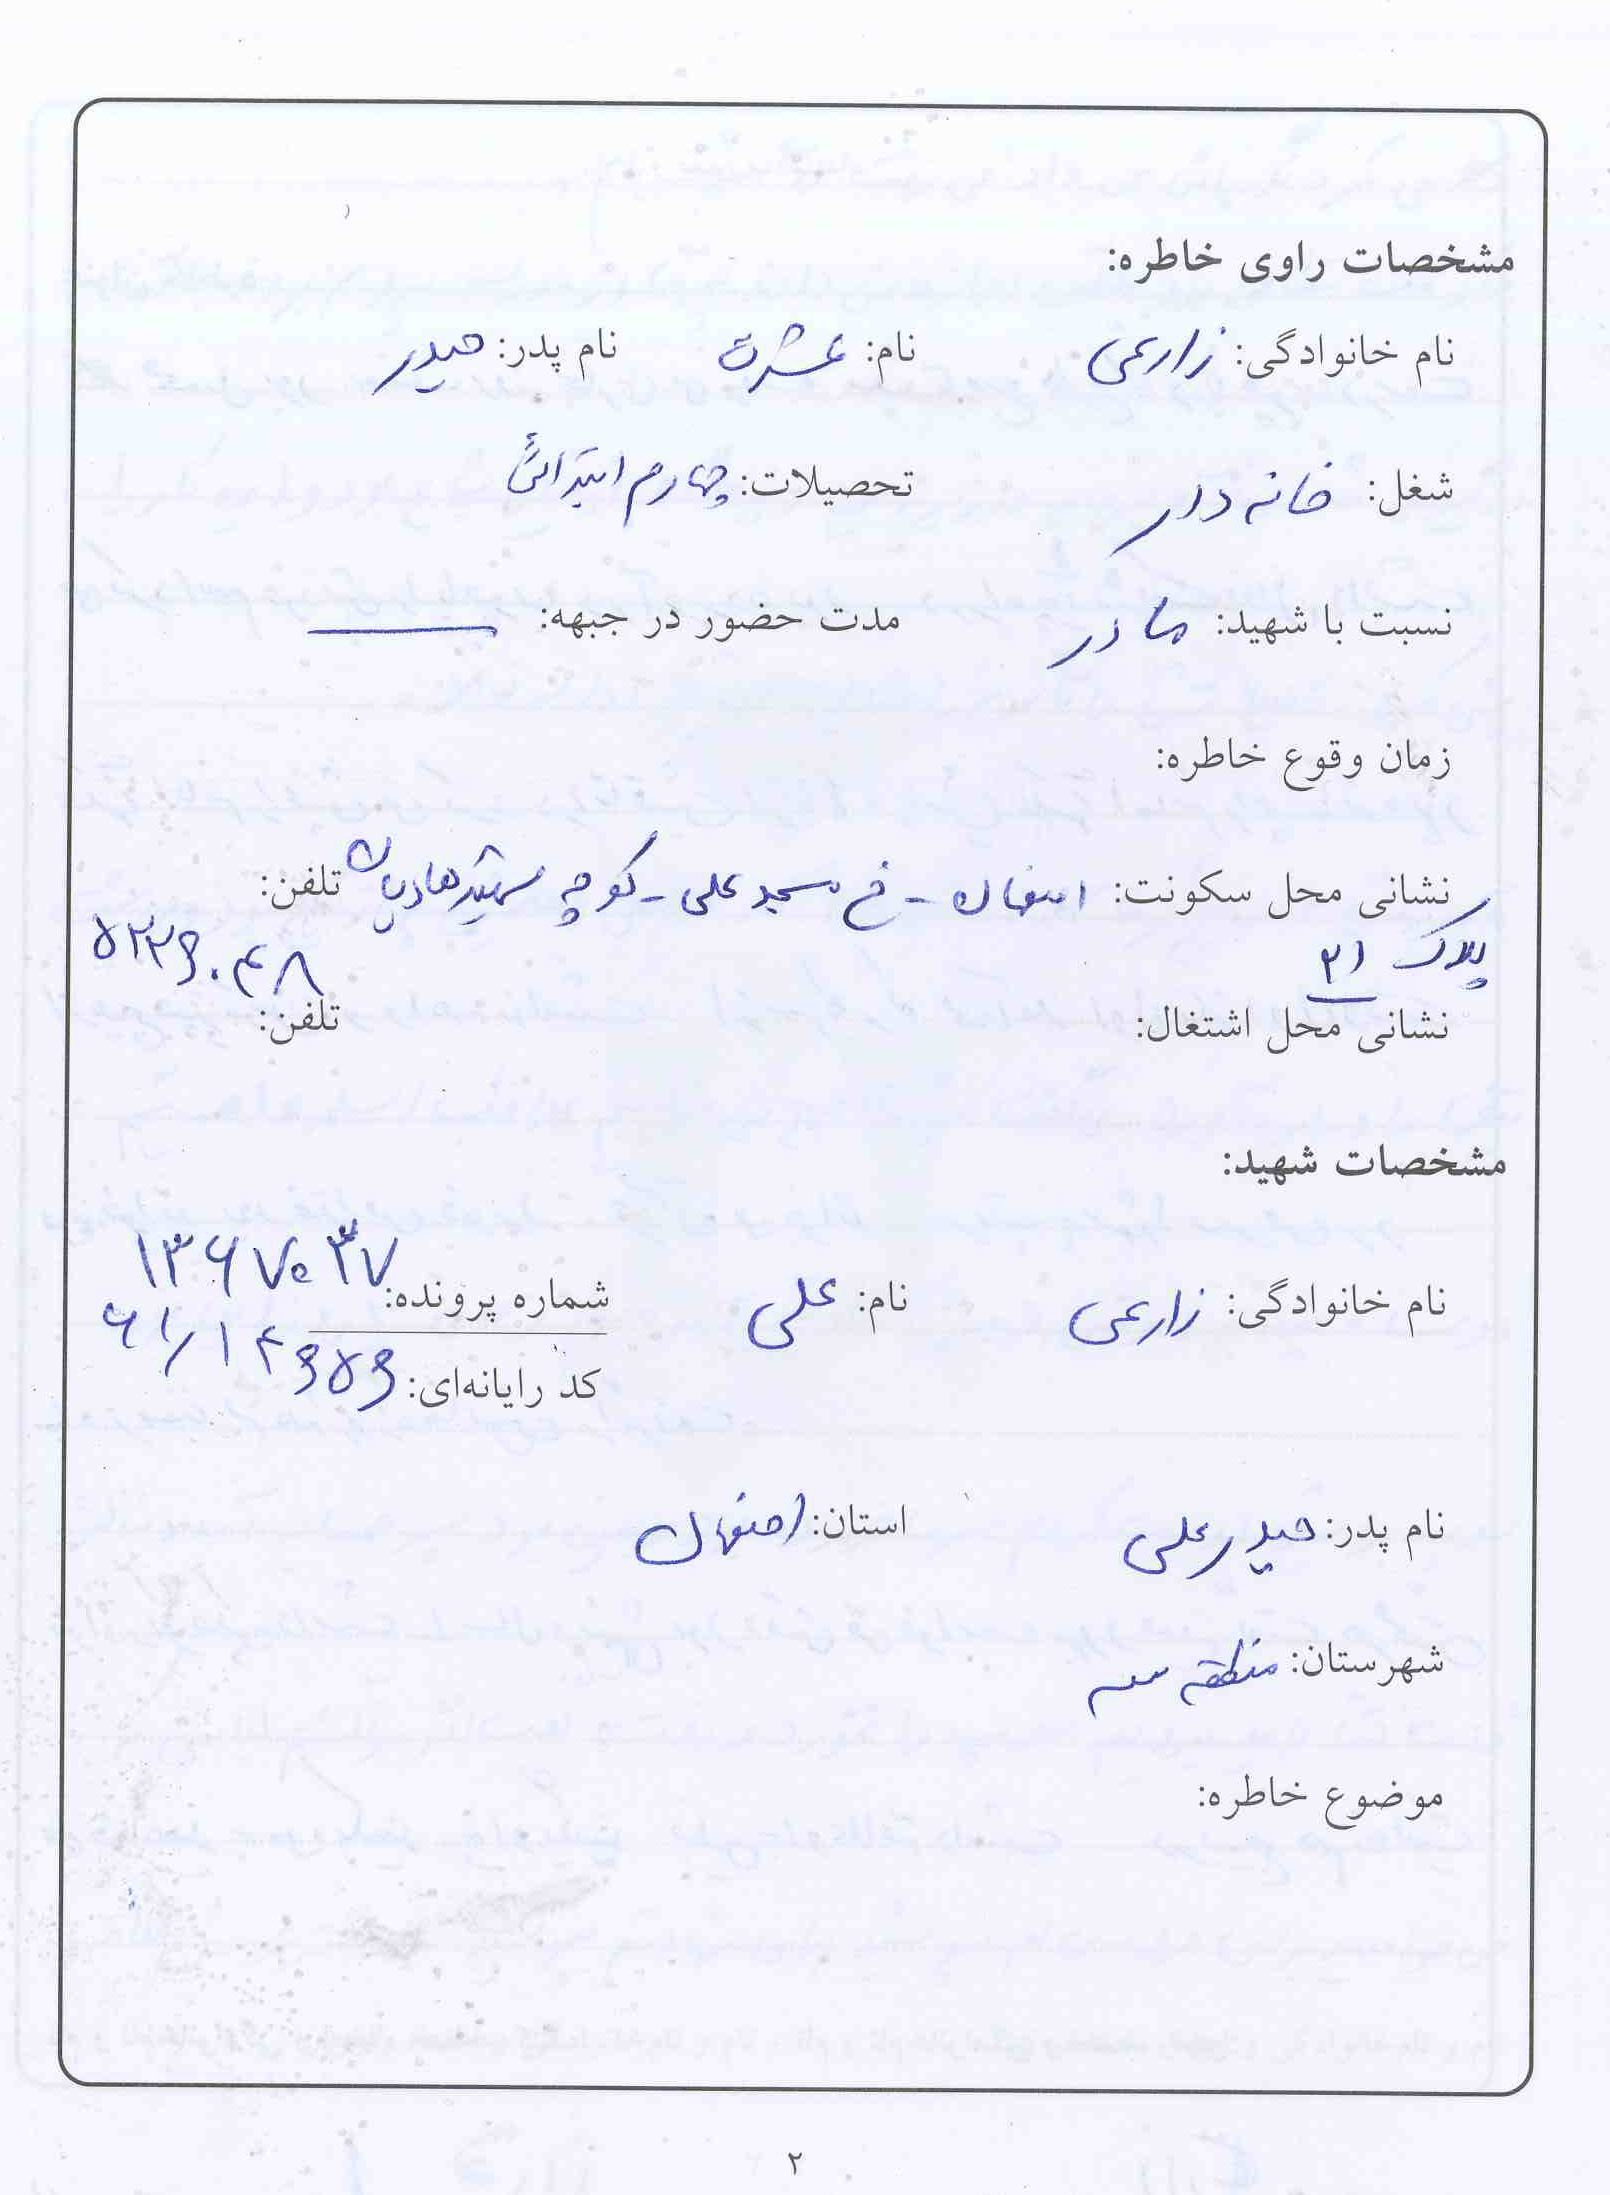 مشخصات راوی خاطره:
نام خانوادگی: زارعی نام: عشرت نام پدر: حیدر
شغل: خانه دار تحصیلات: چهارم ابتدائی
نسبت با شهید: مادر مدت حضور در جبهه: ـــــ
زمان وقوع خاطره:
نشانی محل سکونت: اصفهان - خ مسجد علی - کوچه شهید هادیان تلفن:
پلاک ۳۱ ۵۲۲۶۰۴۸
نشانی محل اشتغال: تلفن:
مشخصات شهید:
نام خانوادگی: زارعی نام: علی شماره پرونده: ۱۳۶۷۰۳۷
کد رایانه‌ای: ۶۱/۱۲۶۵۶
نام پدر: حیدر علی استان: اصفهان
شهرستان: منطقه سه
موضوع خاطره:
۲